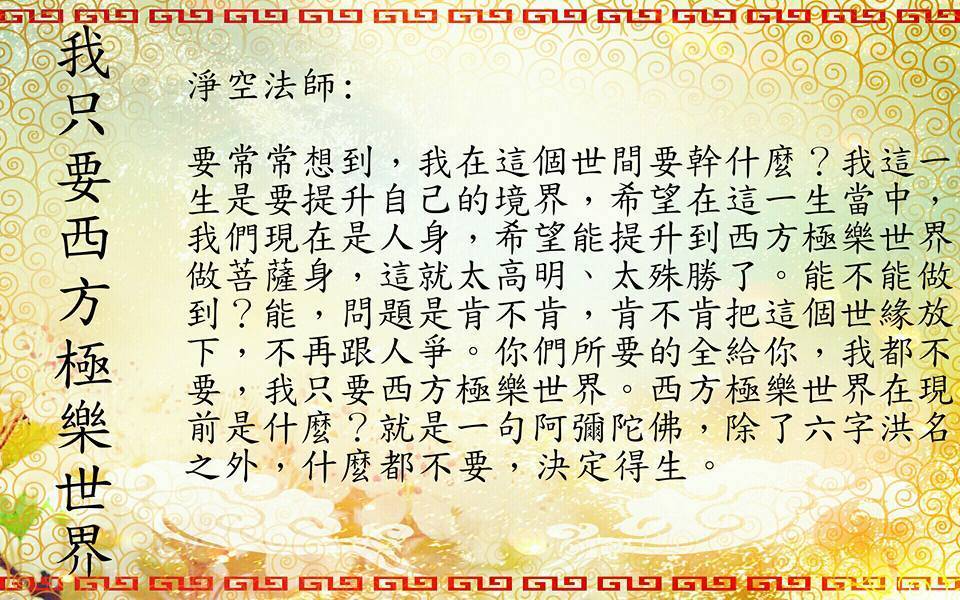 我只要西方極樂世界
淨空法師:
要常常想到，我在這個世間要幹什麼？我這一
生是要提升自己的境界，希望在這一生當中，
我們現在是人身，希望能提升到西方極樂世界
做菩薩身，這就太高明、太殊勝了。能不能做
到？能，問題是肯不肯，肯不肯把這個世緣放
下，不再跟人爭。你們所要的全給你，我都不
要，我只要西方極樂世界。西方極樂世界在現
前是什麼？就是一句阿彌陀佛，除了六字洪名
之外，什麼都不要，決定得生。